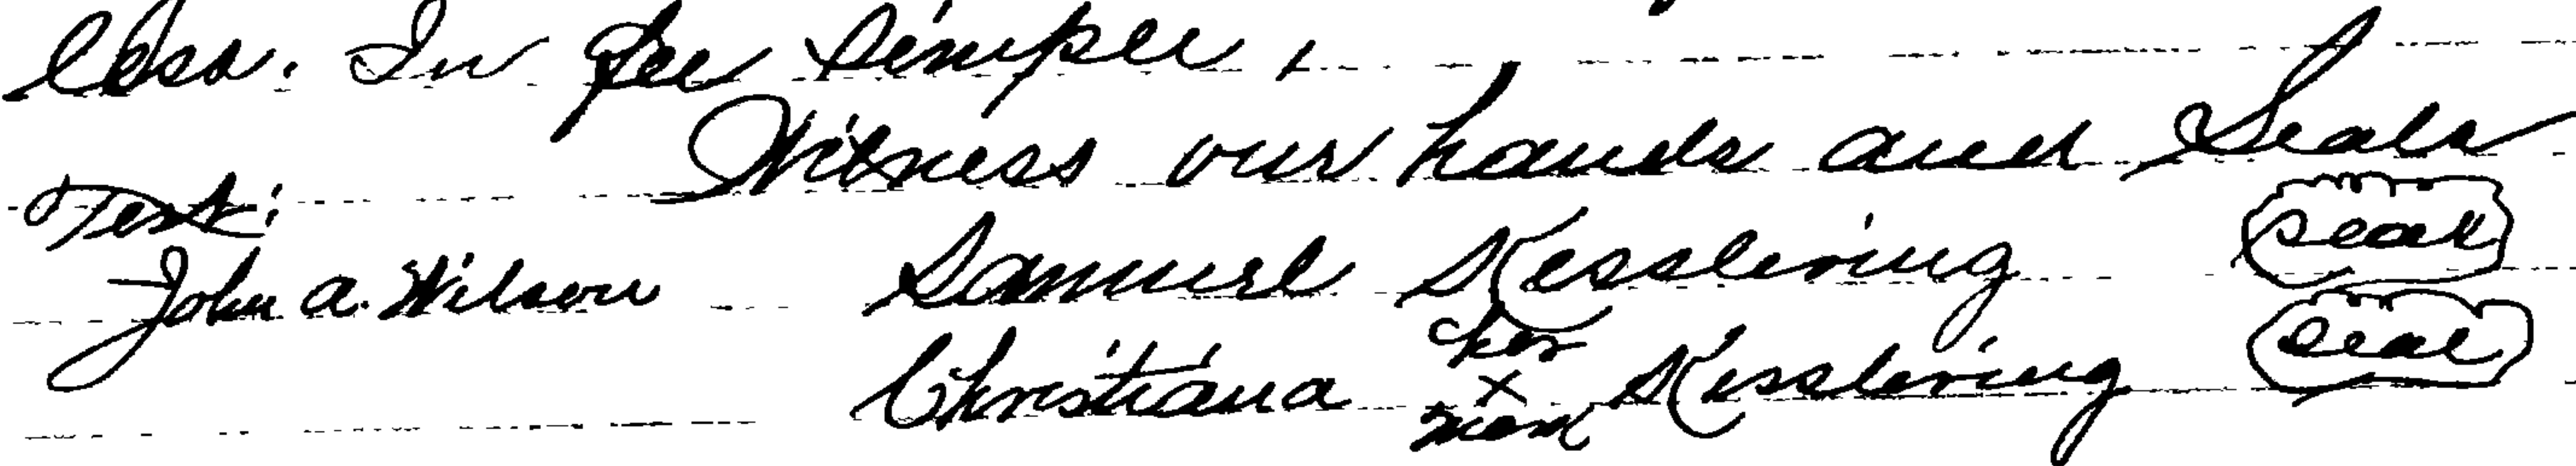 less. In fee simple,
Witness our hands and Seals
Test:
John A. Wilson Samuel Kesslering seal
her
Christiana x Kesslering seal
mark